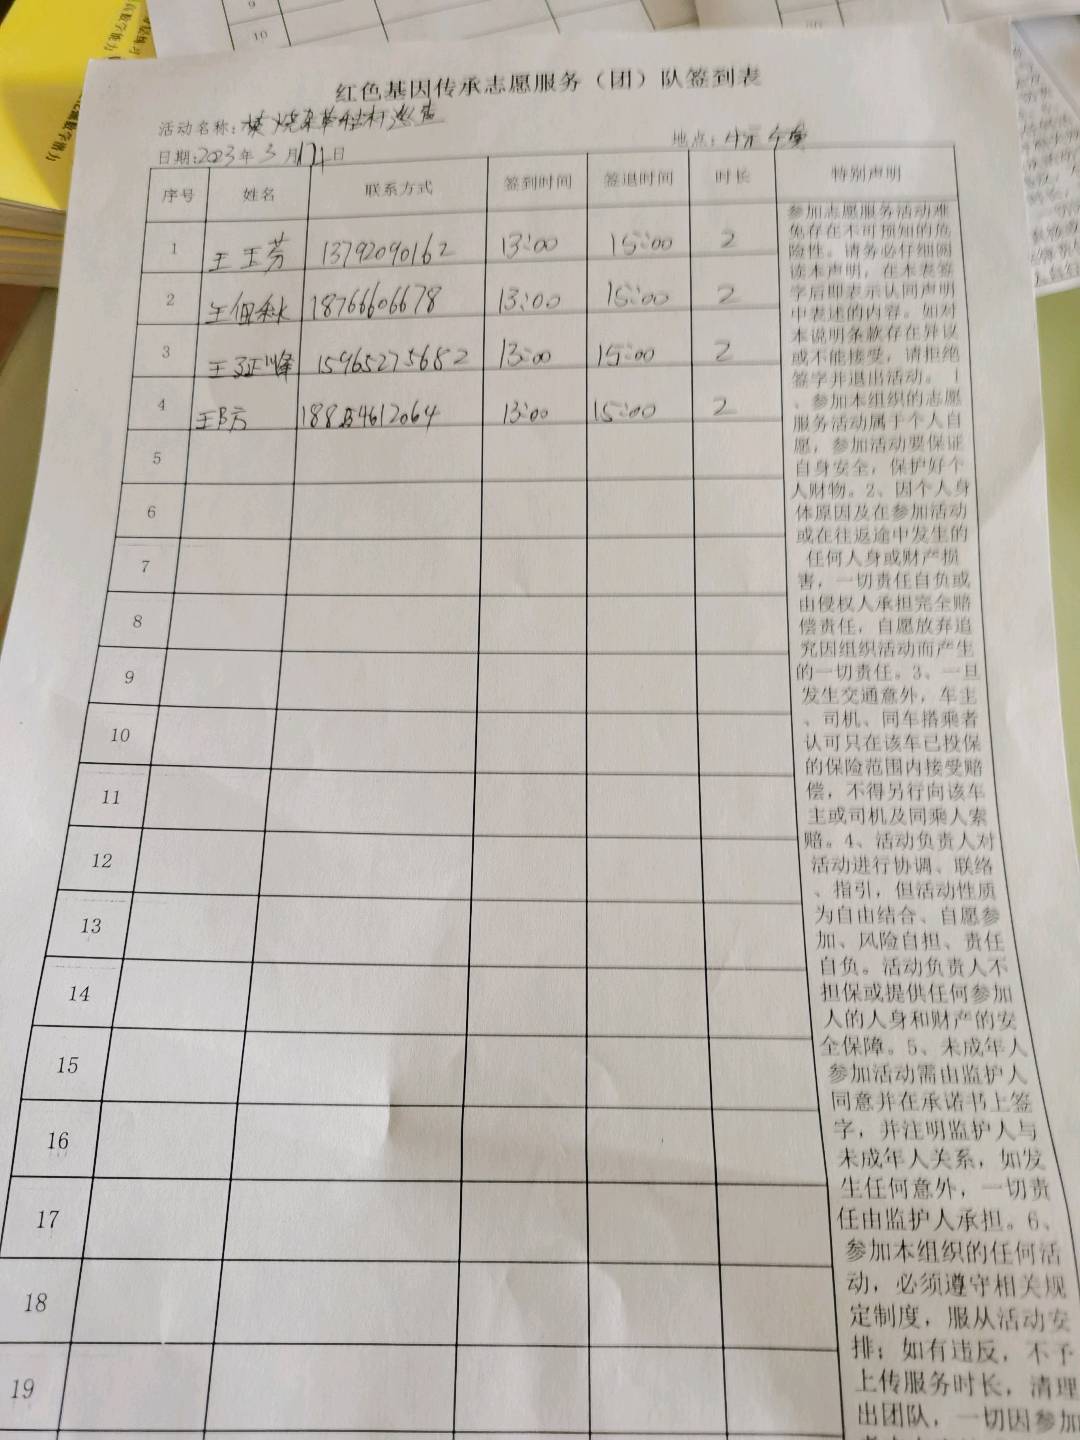 9
10
红色基因传承志愿服务（团）队签到表
活动名称:
日期:2023年3月17日
地点:
序号 姓名 联系方式 签到时间 签退时间 时长 特别声明
1 王玉芳 13792090162 13:00 15:00 2
2 18766606678 13:00 15:00 2
3 15965275682 13:00 15:00 2
4 13:00 15:00 2
5
6
7
8
9
10
11
12
13
14
15
16
17
18
19
参加志愿服务活动难
免存在不可预知的危
险性。请务必仔细阅
读本声明，在本表签
字后即表示认同声明
中表述的内容。如对
本说明条款存在异议
或不能接受，请拒绝
签字并退出活动。 1
、参加本组织的志愿
服务活动属于个人自
愿，参加活动要保证
自身安全，保护好个
人财物。2、因个人身
体原因及在参加活动
或在往返途中发生的
任何人身或财产损
害，一切责任自负或
由侵权人承担完全赔
偿责任，自愿放弃追
究因组织活动而产生
的一切责任。3、一旦
发生交通意外，车主
、司机、同车搭乘者
认可只在该车已投保
的保险范围内接受赔
偿，不得另行向该车
主或司机及同乘人索
赔。4、活动负责人对
活动进行协调、联络
、指引，但活动性质
为自由结合、自愿参
加、风险自担、责任
自负。活动负责人不
担保或提供任何参加
人的人身和财产的安
全保障。5、未成年人
参加活动需由监护人
同意并在承诺书上签
字，并注明监护人与
未成年人关系，如发
生任何意外，一切责
任由监护人承担。6、
参加本组织的任何活
动，必须遵守相关规
定制度，服从活动安
排；如有违反，不予
上传服务时长，清理
出团队，一切因参加